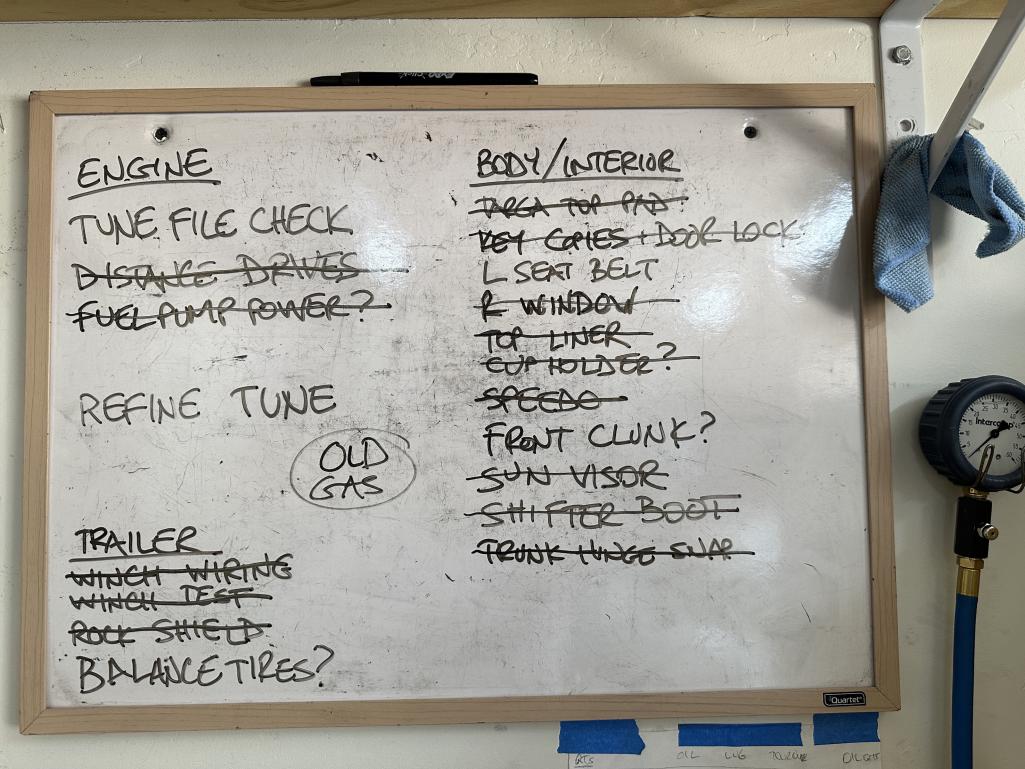 ENGINE
TUNE FILE CHECK
DISTANCE DRIVES
FUEL PUMP POWER?
REFINE TUNE
OLD
GAS
TRAILER
WINCH WIRING
WINCH TEST
ROCK SHIELD
BALANCE TIRES?
BODY/INTERIOR
TARGA TOP PAD
KEY COPIES + DOOR LOCK
L SEAT BELT
R WINDOW
TOP LINER
CUP HOLDER?
SPEEDO
FRONT CLUNK?
SUN VISOR
SHIFTER BOOT
TRUNK HINGE SNAP
Quartet
Intercomp
OIL LUG TORQUE